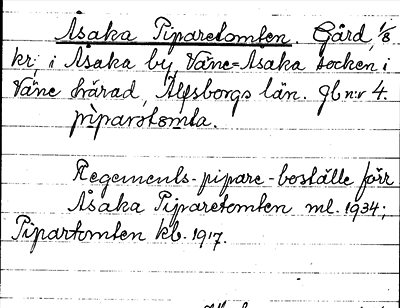 Åsaka Piparetomten. Gård, 1/8
kr. i Åsaka by, Väne-Åsaka socken i
Väne härad, Älfsborgs län. Jb nr 4.
pìparotomta.
Regements-pipare-boställe förr
Åsaka Piparetomten ml. 1934;
Pipartomten kb. 1917.